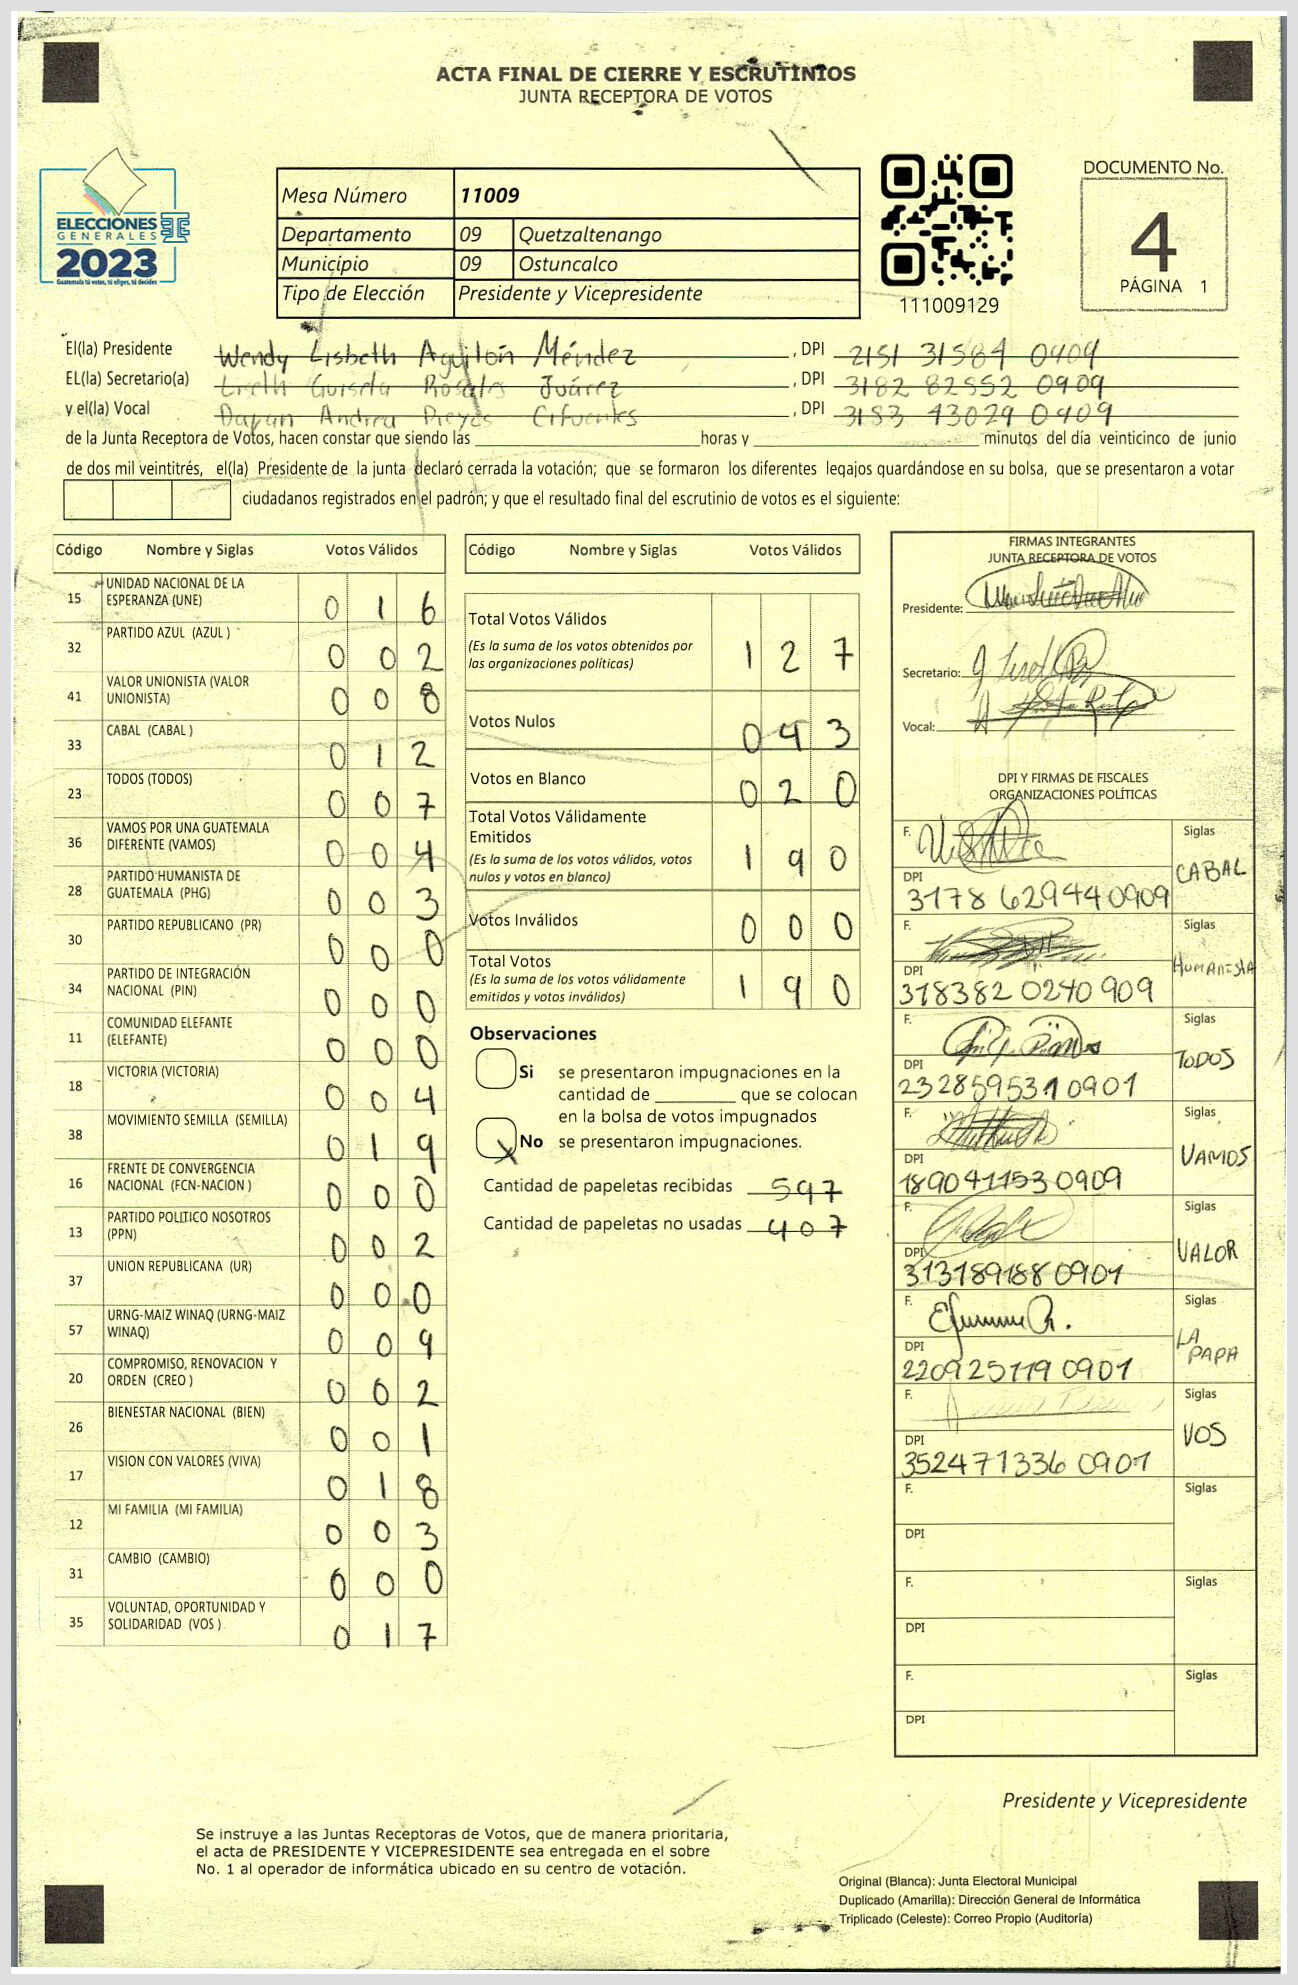 ACTA FINAL DE CIERRE Y ESCRUTINIOS
JUNTA RECEPTORA DE VOTOS
ELECCIONES
GENERALES
2023
Guatemala tú votas, tú eliges, tú decides
Mesa Número 11009
Departamento 09 Quetzaltenango
Municipio 09 Ostuncalco
Tipo de Elección Presidente y Vicepresidente
111009129
DOCUMENTO No.
4
PÁGINA 1
El(la) Presidente Wendy Lisbeth Aguilón Méndez, DPI 2151 31584 0909
EL(la) Secretario(a) Liseth Guisela Rosales Juárez, DPI 3182 82552 0909
y el(la) Vocal Dayan Andrea Reyes Cifuentes, DPI 3183 43029 0909
de la Junta Receptora de Votos, hacen constar que siendo las ____ horas y ____ minutos del día veinticinco de junio
de dos mil veintitrés, el(la) Presidente de la junta declaró cerrada la votación; que se formaron los diferentes legajos guardándose en su bolsa, que se presentaron a votar
ciudadanos registrados en el padrón; y que el resultado final del escrutinio de votos es el siguiente:
Código Nombre y Siglas Votos Válidos
15 UNIDAD NACIONAL DE LA ESPERANZA (UNE) 0 1 6
32 PARTIDO AZUL (AZUL ) 0 0 2
41 VALOR UNIONISTA (VALOR UNIONISTA) 0 0 8
33 CABAL (CABAL ) 0 1 2
23 TODOS (TODOS) 0 0 7
36 VAMOS POR UNA GUATEMALA DIFERENTE (VAMOS) 0 0 4
28 PARTIDO HUMANISTA DE GUATEMALA (PHG) 0 0 3
30 PARTIDO REPUBLICANO (PR) 0 0 0
34 PARTIDO DE INTEGRACIÓN NACIONAL (PIN) 0 0 0
11 COMUNIDAD ELEFANTE (ELEFANTE) 0 0 0
18 VICTORIA (VICTORIA) 0 0 4
38 MOVIMIENTO SEMILLA (SEMILLA) 0 1 9
16 FRENTE DE CONVERGENCIA NACIONAL (FCN-NACION ) 0 0 0
13 PARTIDO POLITICO NOSOTROS (PPN) 0 0 2
37 UNION REPUBLICANA (UR) 0 0 0
57 URNG-MAIZ WINAQ (URNG-MAIZ WINAQ) 0 0 9
20 COMPROMISO, RENOVACION Y ORDEN (CREO ) 0 0 2
26 BIENESTAR NACIONAL (BIEN) 0 0 1
17 VISION CON VALORES (VIVA) 0 1 8
12 MI FAMILIA (MI FAMILIA) 0 0 3
31 CAMBIO (CAMBIO) 0 0 0
35 VOLUNTAD, OPORTUNIDAD Y SOLIDARIDAD (VOS ) 0 1 7
Código Nombre y Siglas Votos Válidos
Total Votos Válidos 1 2 7
(Es la suma de los votos obtenidos por
las organizaciones políticas)
Votos Nulos 0 4 3
Votos en Blanco 0 2 0
Total Votos Válidamente
Emitidos 1 9 0
(Es la suma de los votos válidos, votos
nulos y votos en blanco)
Votos Inválidos 0 0 0
Total Votos 1 9 0
(Es la suma de los votos válidamente
emitidos y votos inválidos)
Observaciones
Si se presentaron impugnaciones en la
cantidad de ____ que se colocan
en la bolsa de votos impugnados
X No se presentaron impugnaciones.
Cantidad de papeletas recibidas 597
Cantidad de papeletas no usadas 407
FIRMAS INTEGRANTES
JUNTA RECEPTORA DE VOTOS
Presidente:
Secretario:
Vocal:
DPI Y FIRMAS DE FISCALES
ORGANIZACIONES POLÍTICAS
F. Siglas CABAL
DPI 3178 629440909
F. Siglas HUMANISTA
DPI 318382 0240909
F. Siglas TODOS
DPI 2328595310901
F. Siglas VAMOS
DPI 1890411530909
F. Siglas VALOR
DPI 3131891880901
F. Siglas LA PAPA
DPI 2209251190901
F. Siglas VOS
DPI 3524713360901
F. Siglas
DPI
F. Siglas
DPI
F. Siglas
DPI
Presidente y Vicepresidente
Se instruye a las Juntas Receptoras de Votos, que de manera prioritaria,
el acta de PRESIDENTE Y VICEPRESIDENTE sea entregada en el sobre
No. 1 al operador de informática ubicado en su centro de votación.
Original (Blanca): Junta Electoral Municipal
Duplicado (Amarilla): Dirección General de Informática
Triplicado (Celeste): Correo Propio (Auditoría)